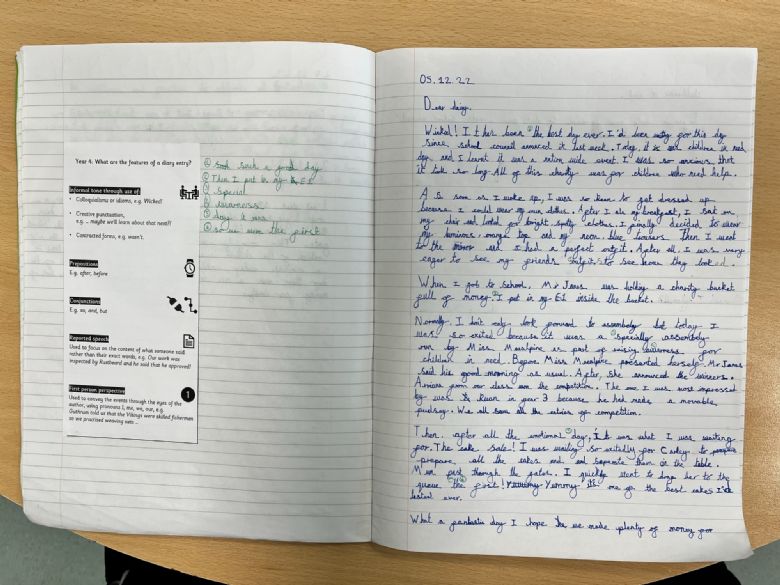 Year 4: What are the features of a diary entry?
Informal tone through use of:
• Colloquialisms or idioms, e.g. Wicked!
• Creative punctuation,
e.g. ... maybe we'll learn about that next?!
• Contracted forms, e.g. wasn't.
Prepositions
E.g. after, before
Conjunctions
E.g. so, and, but
Reported speech
Used to focus on the content of what someone said
rather than their exact words, e.g. Our work was
inspected by Rustbeard and he said that he approved!
First person perspective
1
Used to convey the events through the eyes of the
author, using pronouns I, me, we, our, e.g.
Guthrum told us that the Vikings were skilled fishermen
so we practised weaving nets ...
① such a good day
② Then I put in my £1
③ special
④ awareness
⑤ day it was
⑥ so we were the first
05.12.22
Dear diary,
Wicked! It has been the best day ever. I'd been waiting for this day
since school council announced it last week. Today, it is children in need
day and I learnt it was a nation wide event. I was so anxious that
it took so long. All of this charity was for children who need help.
As soon as I woke up, I was so keen to get dressed up
because I could wear my own clothes. After I ate my breakfast, I sat on
my chair and looked for bright, spotty clothes. I finally decided to wear
my luminous orange top and my neon blue trousers. Then I went
to the mirror and I had a perfect outfit. After all I was very
eager to see my friends outfits to see how they looked.
When I got to school, Mr Jones was holding a charity bucket
full of money. I put in my £1 inside the bucket.
Normally I don't really look forward to assembly but today I
was so exited because it was a specially assembly
run by Miss as part of raising awareness for
children in need. Before Miss presented herself, Mr Jones
said his good morning as usual. After, she announced the winners.
from our class won the competition. The one I was most impressed
by was in year 3 because he had made a movable
pudsey. We all saw all the entries of competition.
Then, after all the emotional day, it was what I was waiting
for. The cake sale! I was waiting so exitedly for to
prepare all the cakes and separate them on the table.
Mum past through the gates. I quickly went to drag her to the
queue the first! Yummy me go the best cakes I'd
tasted ever.
What a fantastic day I hope we made plenty of money for